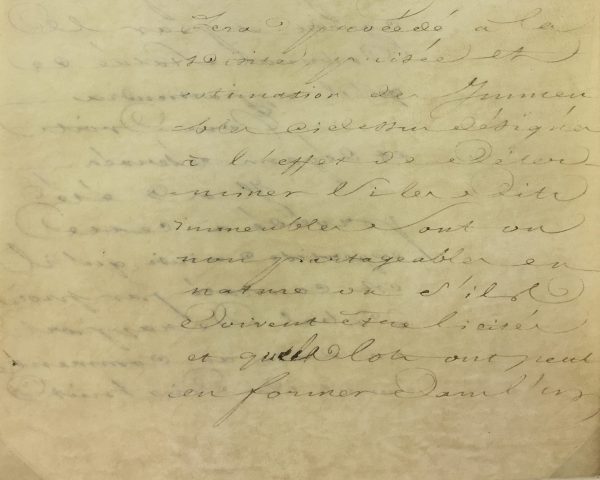 sera procédé a la
visite prisée et
estimation des Immeu
bles cidessus désignés
à l'effet de déter
miner si les dits
immeubles sont ou
non partageables en
nature ou s'ils
doivent être licités
et quels lots ont peut
en former dans l'un